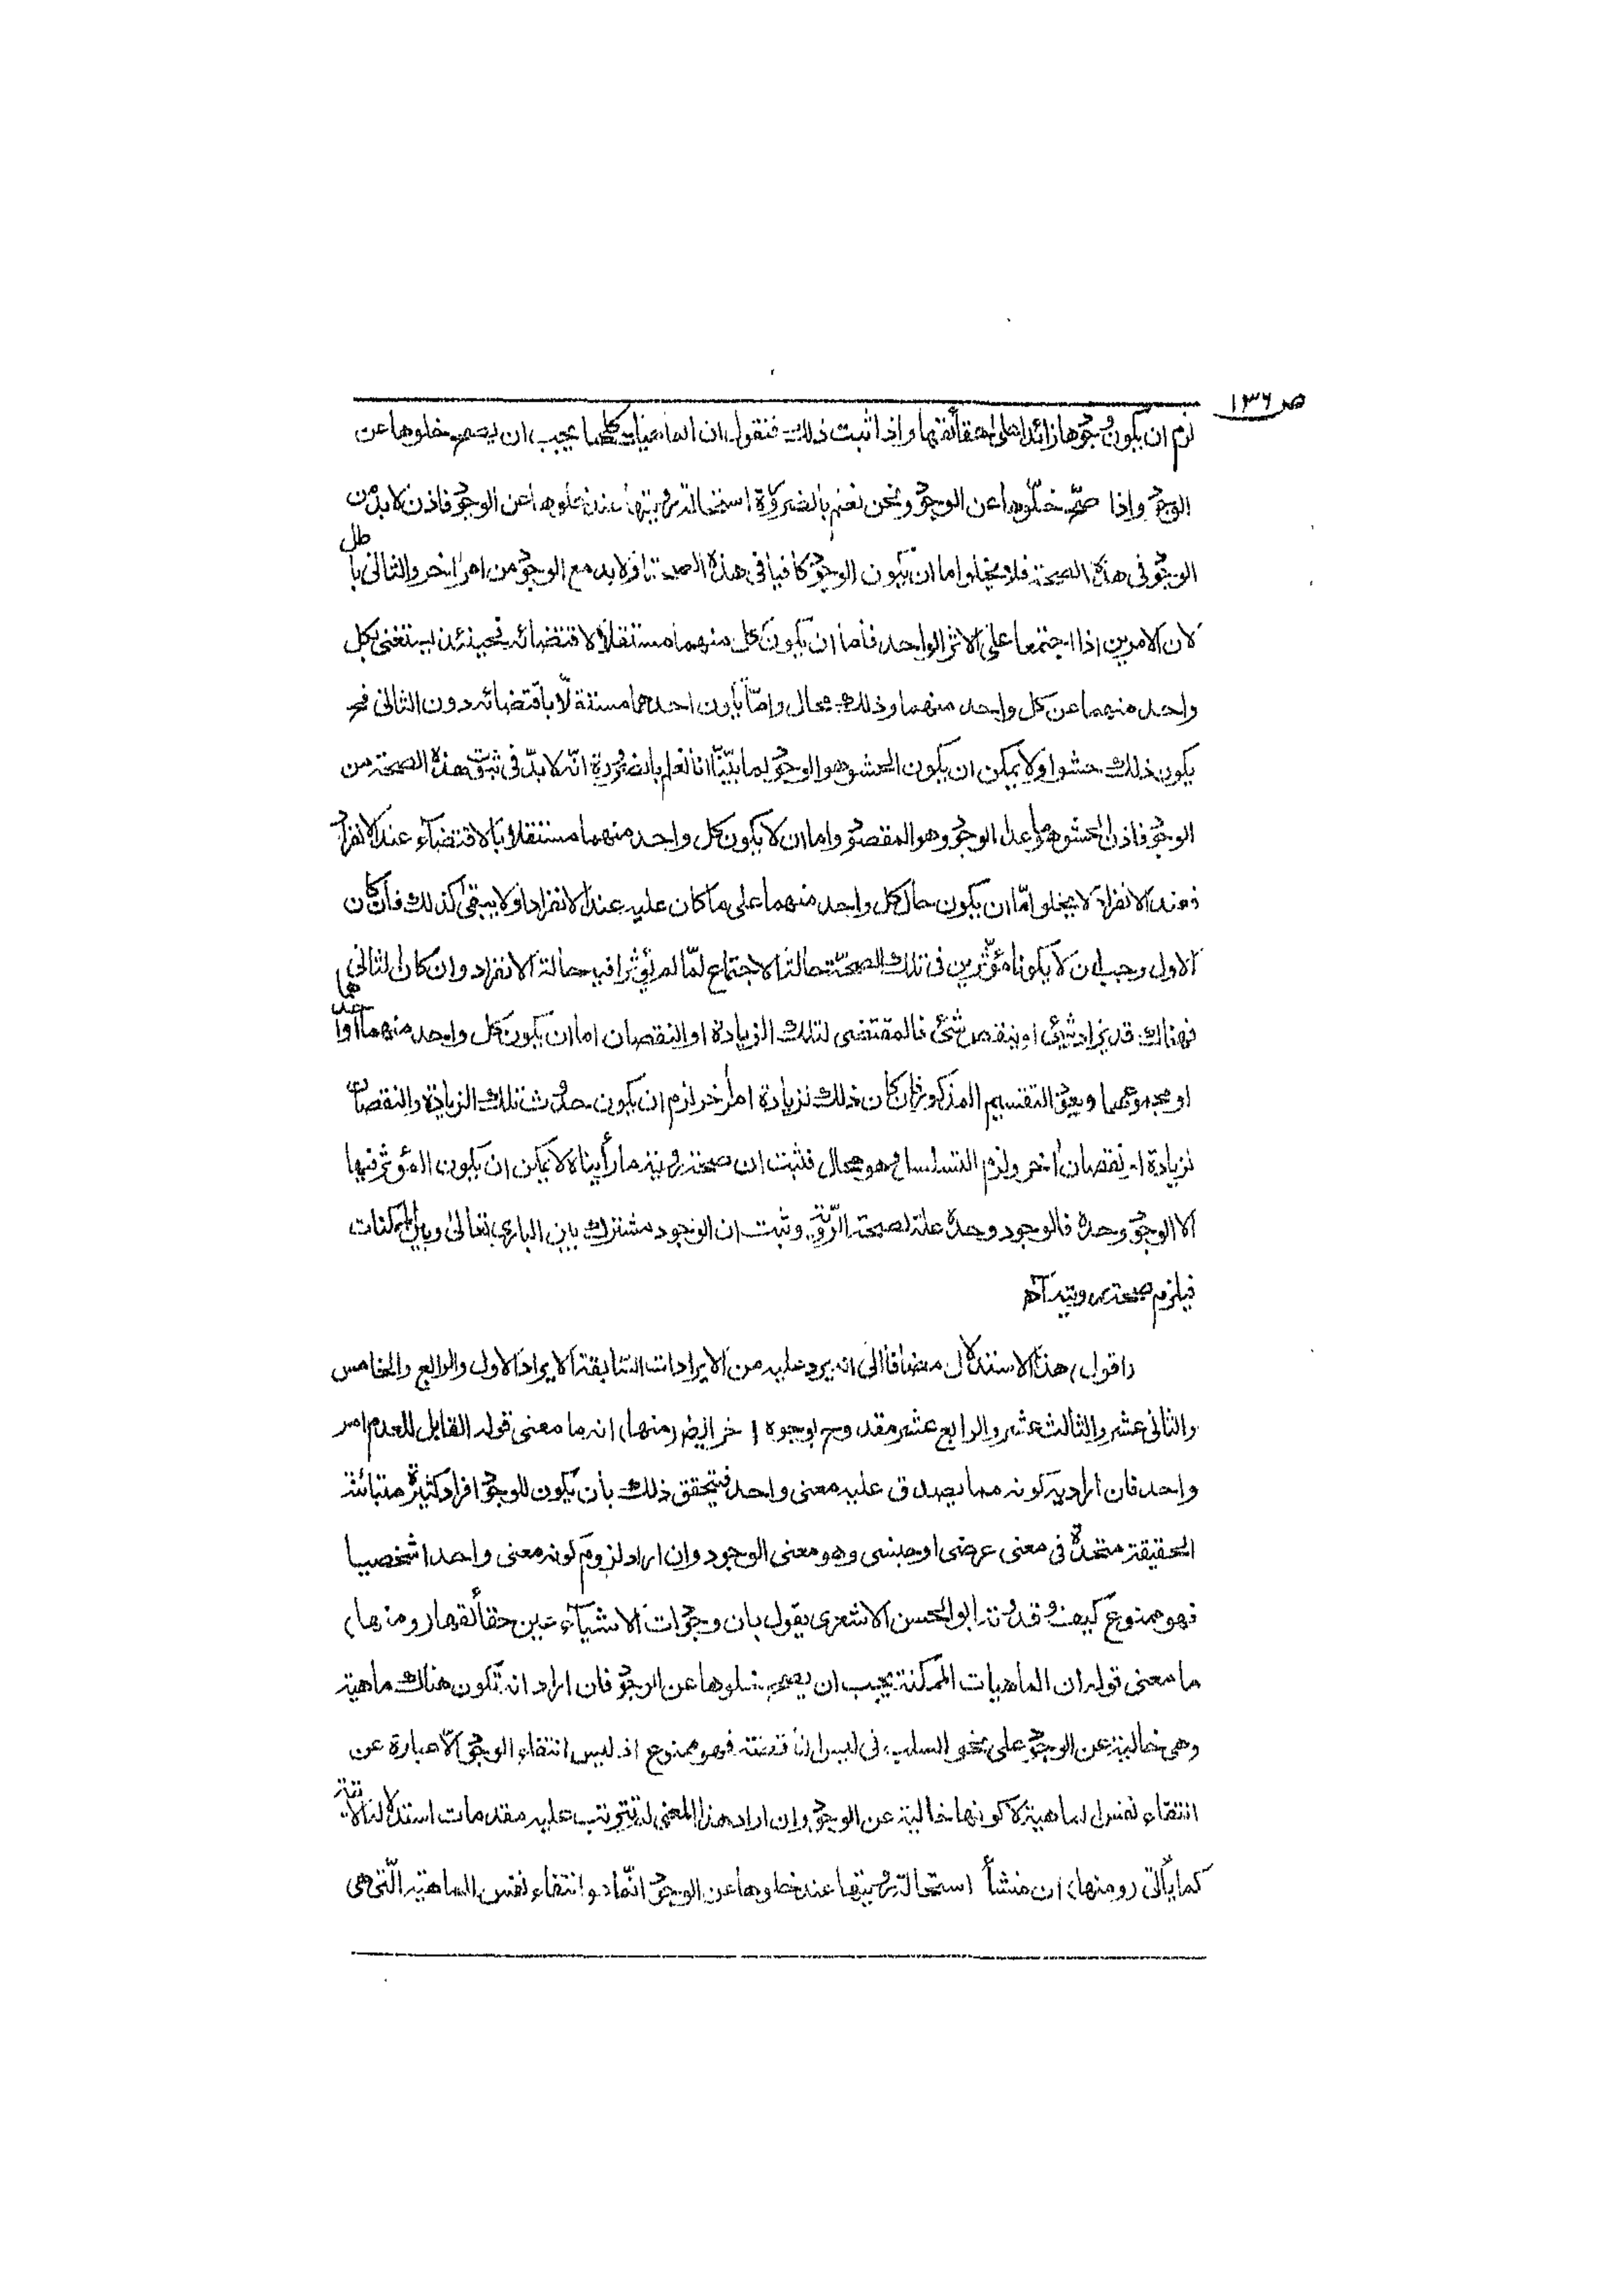 ص ١٣٦
لزم ان يكون وجودها زائدا على حقائقها واذا ثبت ذلك فنقول ان الماهيات كلها يجب ان يصح خلوها عن
الوجود واذا صحّ خلوّها عن الوجود ونحن نعلم بالضرورة استحالة رؤيتها عند خلوها عن الوجود فاذن لابد من
الوجود فى هذه الصحة فلا يخلو اما ان يكون الوجود كافيا فى هذه الصحة او لابد مع الوجود من امر اخر والثانى باطل
لان الامرين اذا اجتمعا على الاثر الواحد فاما ان يكون كل منهما مستقلا لاقتضائه فحينئذ يستغنى بكل
واحد منهما عن كل واحد منهما وذلك محال وامّا يكون احدهما مستقلّا باقتضائه دون الثانى فح
يكون ذلك حشوا ولا يمكن ان يكون الحشو هو الوجود لما بيّنّا انا نعلم بالضرورة انّه لا بدّ فى ثبوت هذه الصحة من
الوجود فاذن الحشو هو ما عدا الوجود وهو المقصود واما ان لا يكون كل واحد منهما مستقلا بالاقتضآء عند الانفراد
فعند الانفراد لا يخلو امّا ان يكون حال كل واحد منهما على ما كان عليه عند الانفراد او لا يبقى كذلك فان كان
الاول وجب ان لا يكونا مؤثّرين فى تلك الصحّة حالة الاجتماع لمّا لم يؤثرا فيه حالة الانفراد وان كان الثانى
فهناك قد يزاد شيئى او ينقص شئ فالمقتضى لتلك الزيادة او النقصان اما ان يكون كل واحد منهما او احدهما
او مجموعهما ويعود التقسيم المذكور فان كان ذلك لزيادة امر اخر لزم ان يكون حدوث تلك الزيادة والنقصان
لزيادة او نقصان اخر ولزم التسلسل وهو محال فثبت ان صحة رؤية ما رأيناه لا يمكن ان يكون المؤثر فيها
الا الوجود وحده فالوجود وحده علة لصحة الرّؤية وثبت ان الوجود مشترك بين البارى تعالى وبين الممكنات
فيلزم صحة رويته آه
(اقول) هذا الاستدلال مضافا الى انه يرد عليه من الايرادات السّابقة الايراد الاول والرابع والخامس
والثانى عشر والثالث عشر والرابع عشر مقدوح بوجوه اخر ايض (منها) انه ما معنى قوله القابل للعدم امر
واحد فان اراد به كونه مما يصدق عليه معنى واحد فيتحقق ذلك بأن يكون للوجود افراد كثيرة متبائنة
الحقيقة متحدة فى معنى عرضى او جنسى وهو معنى الوجود وان اراد لزوم كونه معنى واحدا شخصيا
فهو ممنوع كيف وقدوته ابو الحسن الاشعرى يقول بان وجودات الاشيآء عين حقائقها (ومنها)
ما معنى قوله ان الماهيات الممكنة يجب ان يصح خلوها عن الوجود فان اراد انه تكون هناك ماهية
وهى خالية عن الوجود على نحو السلب فهو ممنوع اذ ليس انتفاء الوجود الّا عبارة عن
انتفاء نفس الماهية لا كونها خالية عن الوجود وان اراد هذا المعنى لم تترتب عليه مقدمات استدلاله الاتية
كما يأتى (ومنها) ان منشأ استحالة رؤيتها عند خلوها عن الوجود انّما هو انتفاء نفس الماهية الّتى هى